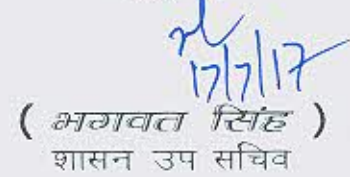 17/7/17
( भगवत सिंह )
शासन उप सचिव